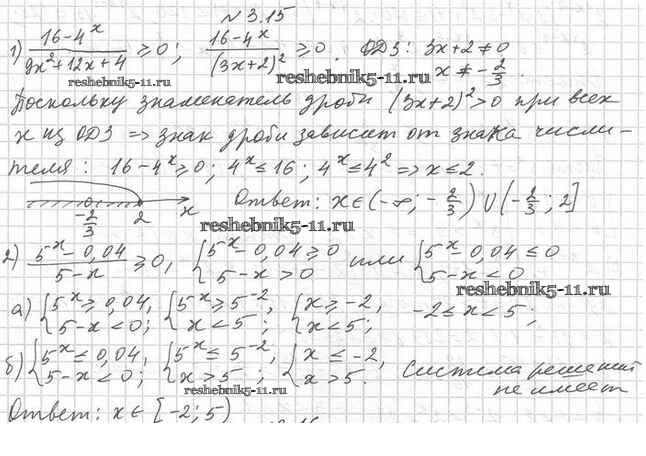 №3.15
1) (16-4^x)/(9x²+12x+4) ≥ 0; (16-4^x)/(3x+2)² ≥ 0. ОДЗ: 3x+2≠0
reshebnik5-11.ru reshebnik5-11.ru x ≠ -2/3.
Поскольку знаменатель дроби (3x+2)²>0 при всех
x из ОДЗ => знак дроби зависит от знака числи-
теля: 16-4^x≥0; 4^x≤16; 4^x≤4² => x≤2.
-2/3 2 x Ответ: x∈(-∞; -2/3)∪(-2/3; 2]
reshebnik5-11.ru
2) (5^x-0,04)/(5-x) ≥0, {5^x-0,04≥0 5-x>0 или {5^x-0,04≤0 5-x<0
reshebnik5-11.ru
а) {5^x≥0,04, 5-x<0; {5^x≥5^-2, x<5; {x≥-2, x<5; -2≤x<5;
б) {5^x≤0,04, 5-x<0; {5^x≤5^-2, x>5; {x≤-2, x>5. Система решений
не имеет
reshebnik5-11.ru
Ответ: x∈[-2; 5)